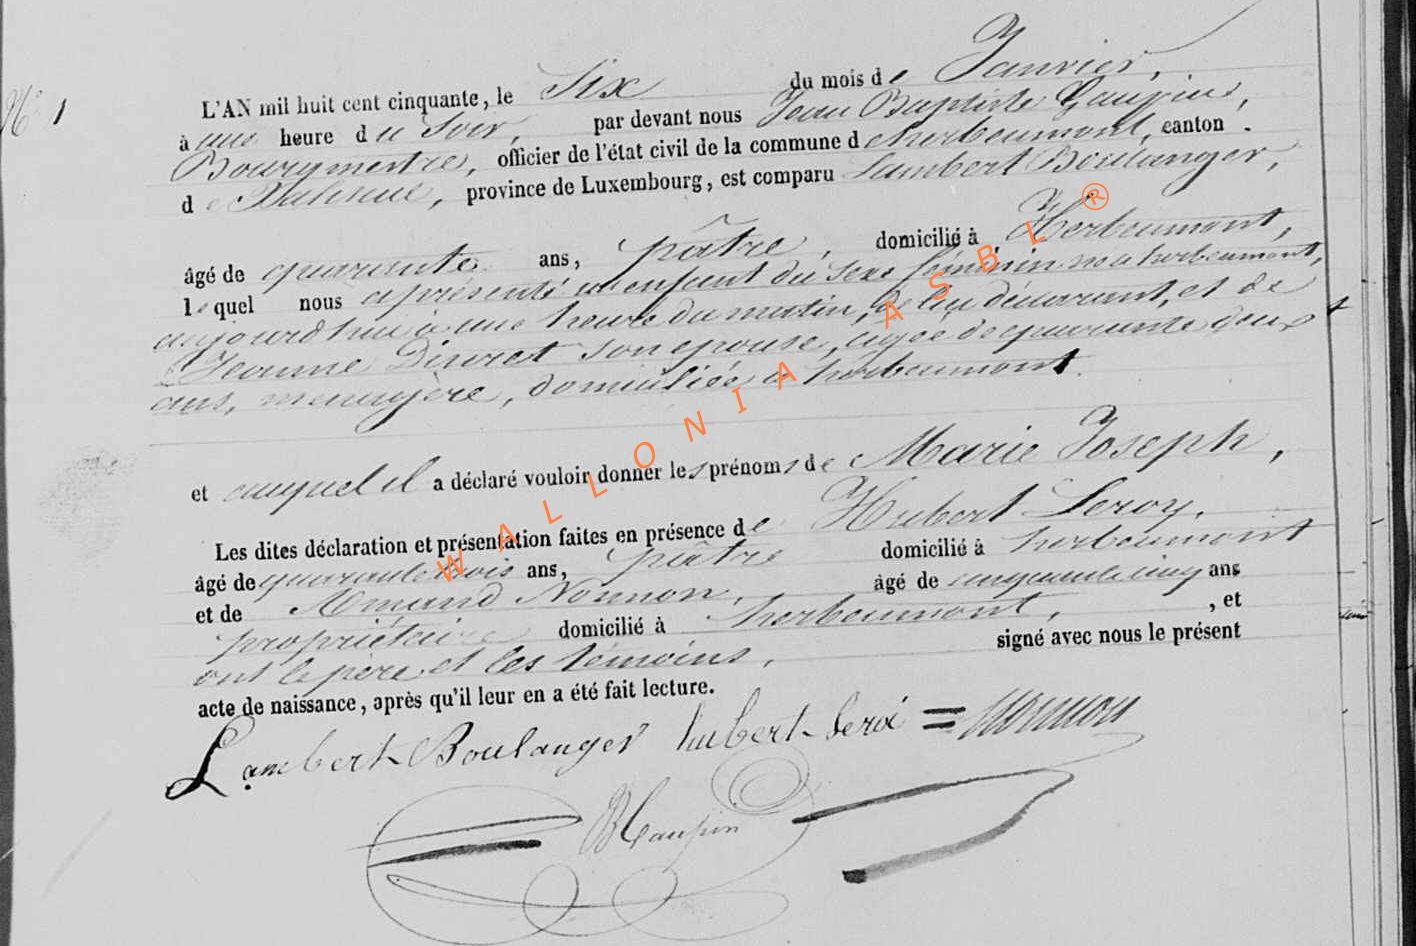 N° 1
L'AN mil huit cent cinquante, le Six du mois de Janvier,
à une heure du Soir, par devant nous Jean Baptiste
Bourgmestre, officier de l'état civil de la commune d'herbeumont, canton
de province de Luxembourg, est comparu Lambert Boulanger,
âgé de quarante ans, pâtre, domicilié à Herbeumont,
lequel nous a présenté un enfant du sexe féminin né a herbeumont,
aujourd'hui à une heure du matin, de lui déclarant, et de
Jeanne son epouse, agée de quarante deux
ans, menagère, domiciliée a herbeumont.
et auquel il a déclaré vouloir donner les prénoms de Marie Joseph,
Les dites déclaration et présentation faites en présence de Hubert Leroy,
âgé de quarante trois ans, pâtre domicilié à herbeumont
et de Amand Nonnon, âgé de cinquante cinq ans
propriétaire domicilié à herbeumont, , et
ont le pere et les témoins, signé avec nous le présent
acte de naissance, après qu'il leur en a été fait lecture.
Lambert Boulanger hubert leroi = Nonnon
WALLONIA ASBL ®